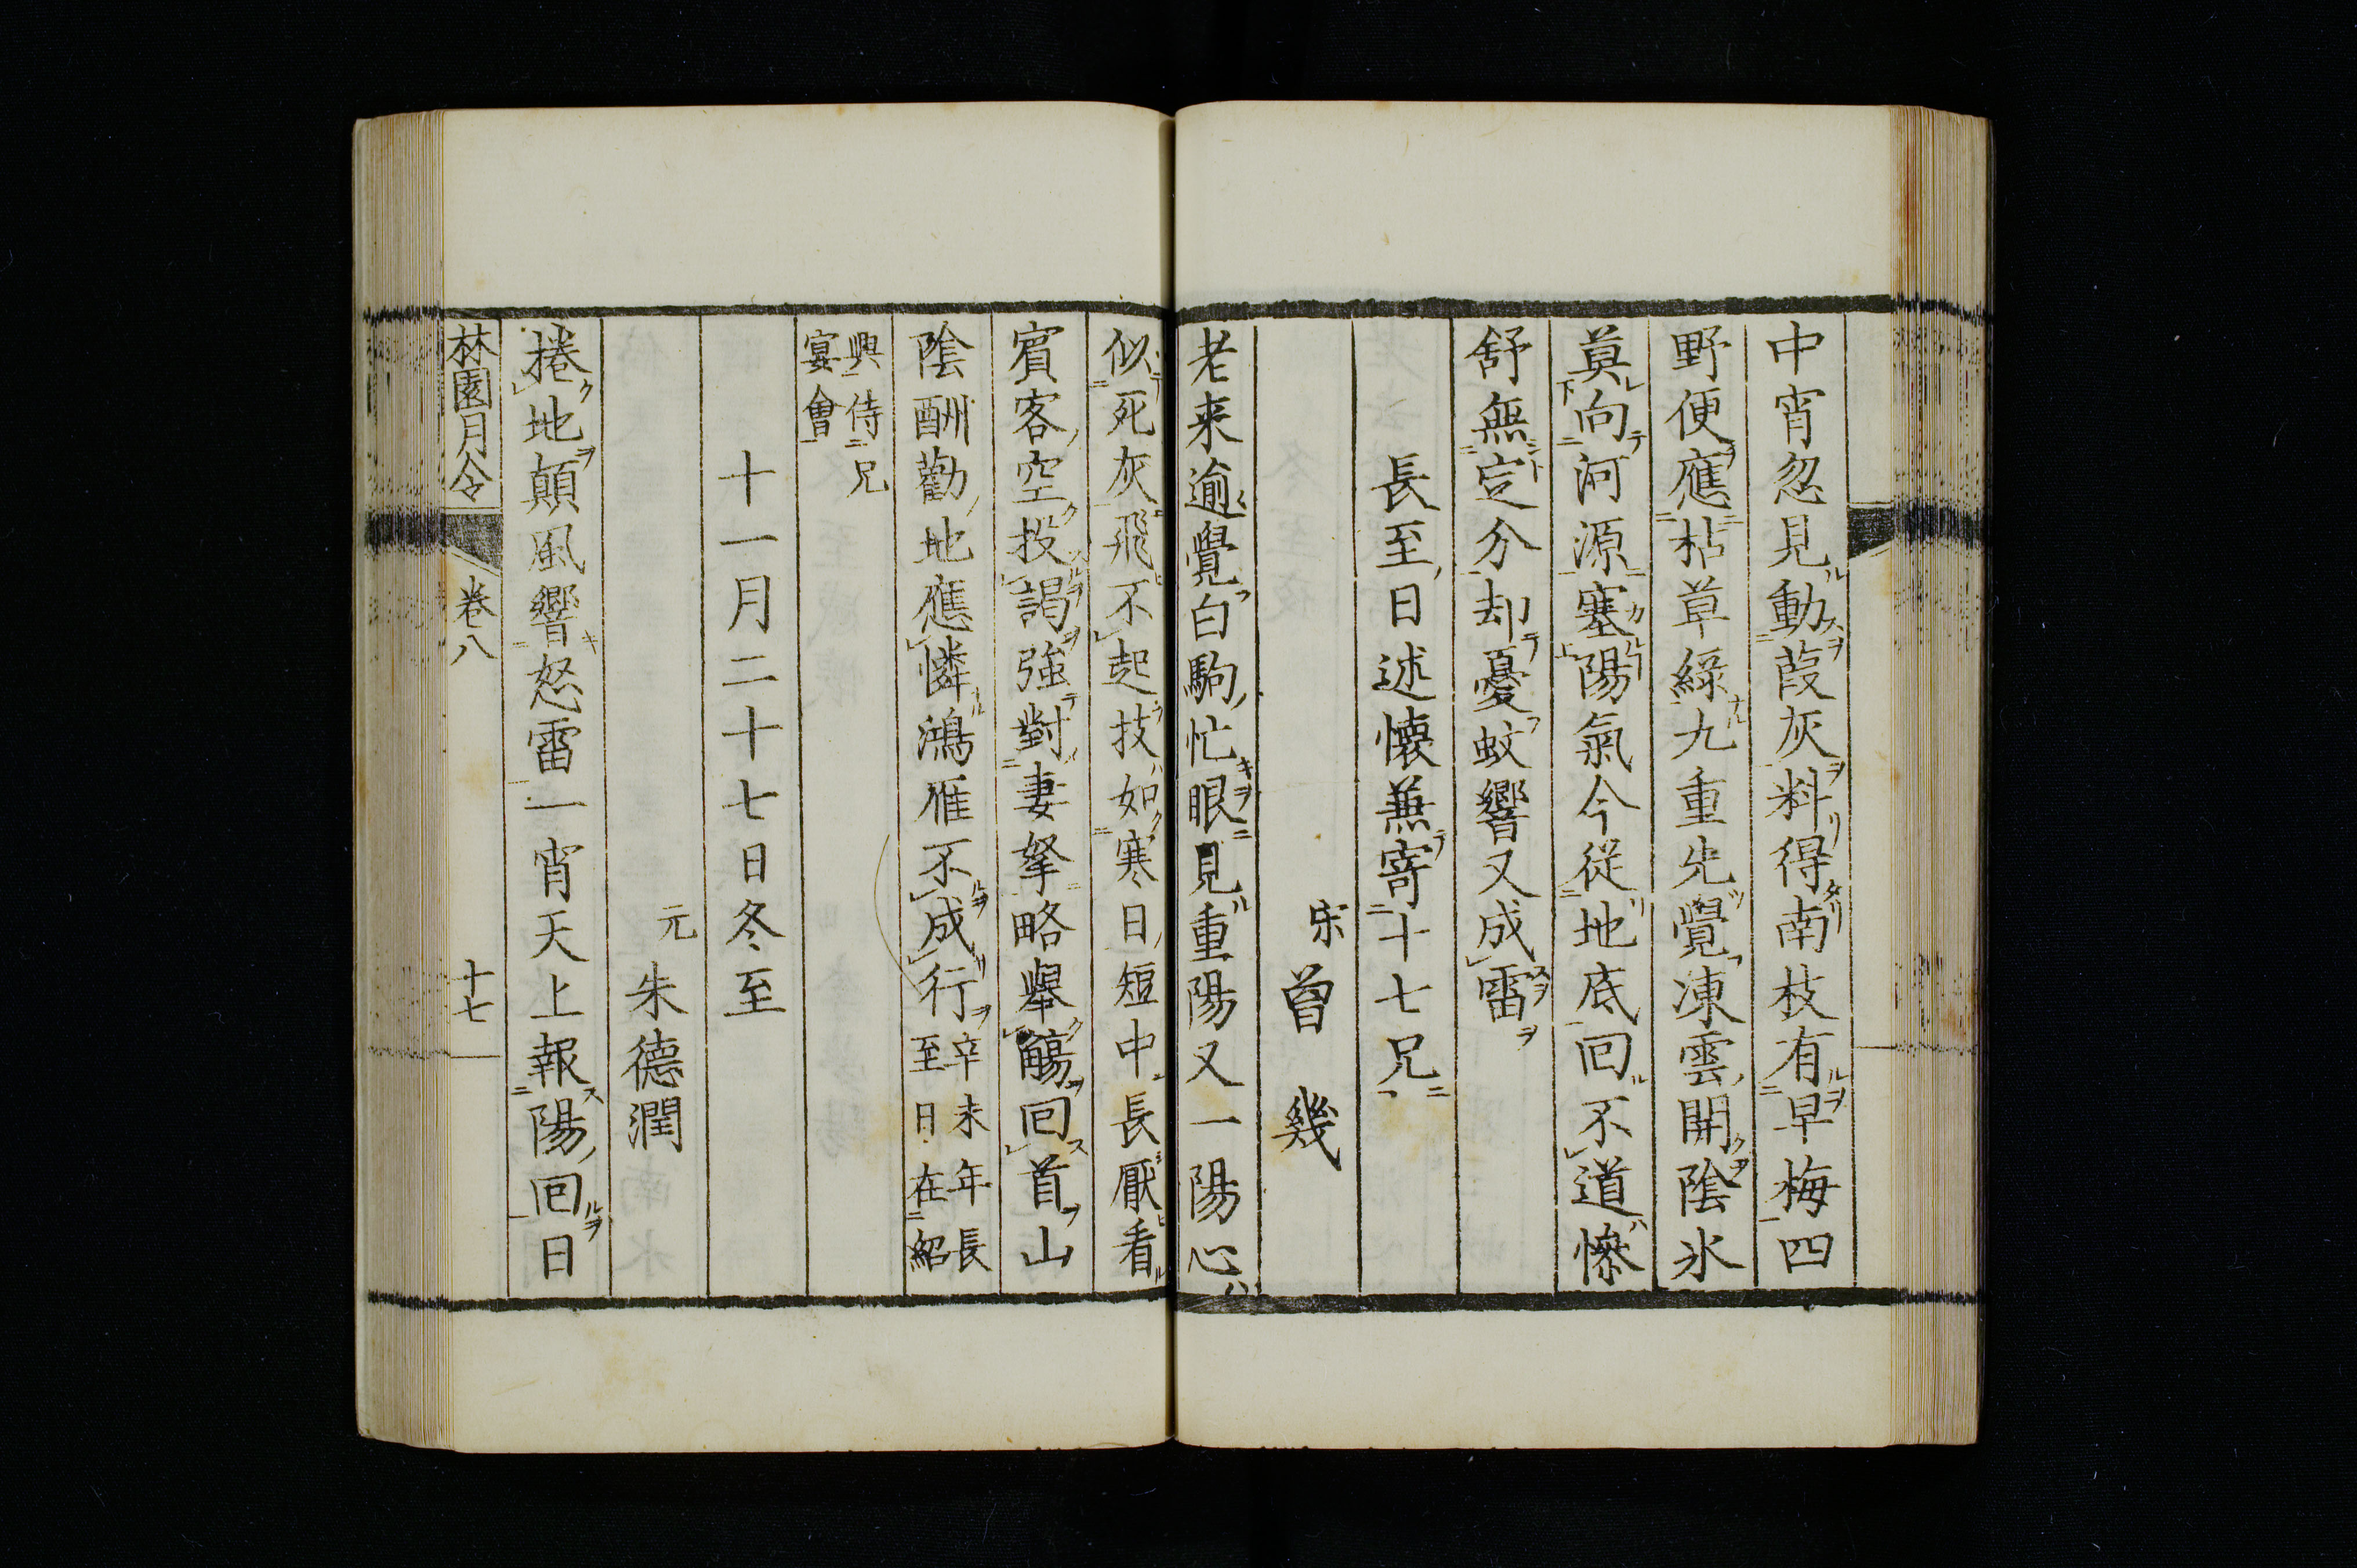 中宵忽見動葭灰料得南枝有早梅四
野便應枯草綠九重先覺凍雲開陰氷
莫向河源塞陽氣今從地底回不道慘
舒無定分却憂蚊響又成雷
長至日述懷兼寄十七兄
宋 曾 幾
老来逾覺白駒忙眼見重陽又一陽心
似死灰飛不起技如寒日短中長厭看
賓客空投謁強對妻孥略舉觴回首山
陰酬勸地應憐鴻雁不成行辛未年長至日在紹
興侍兄宴會
十一月二十七日冬至
元 朱德潤
捲地顛風響怒雷一宵天上報陽回日
林園月令 卷八 十七